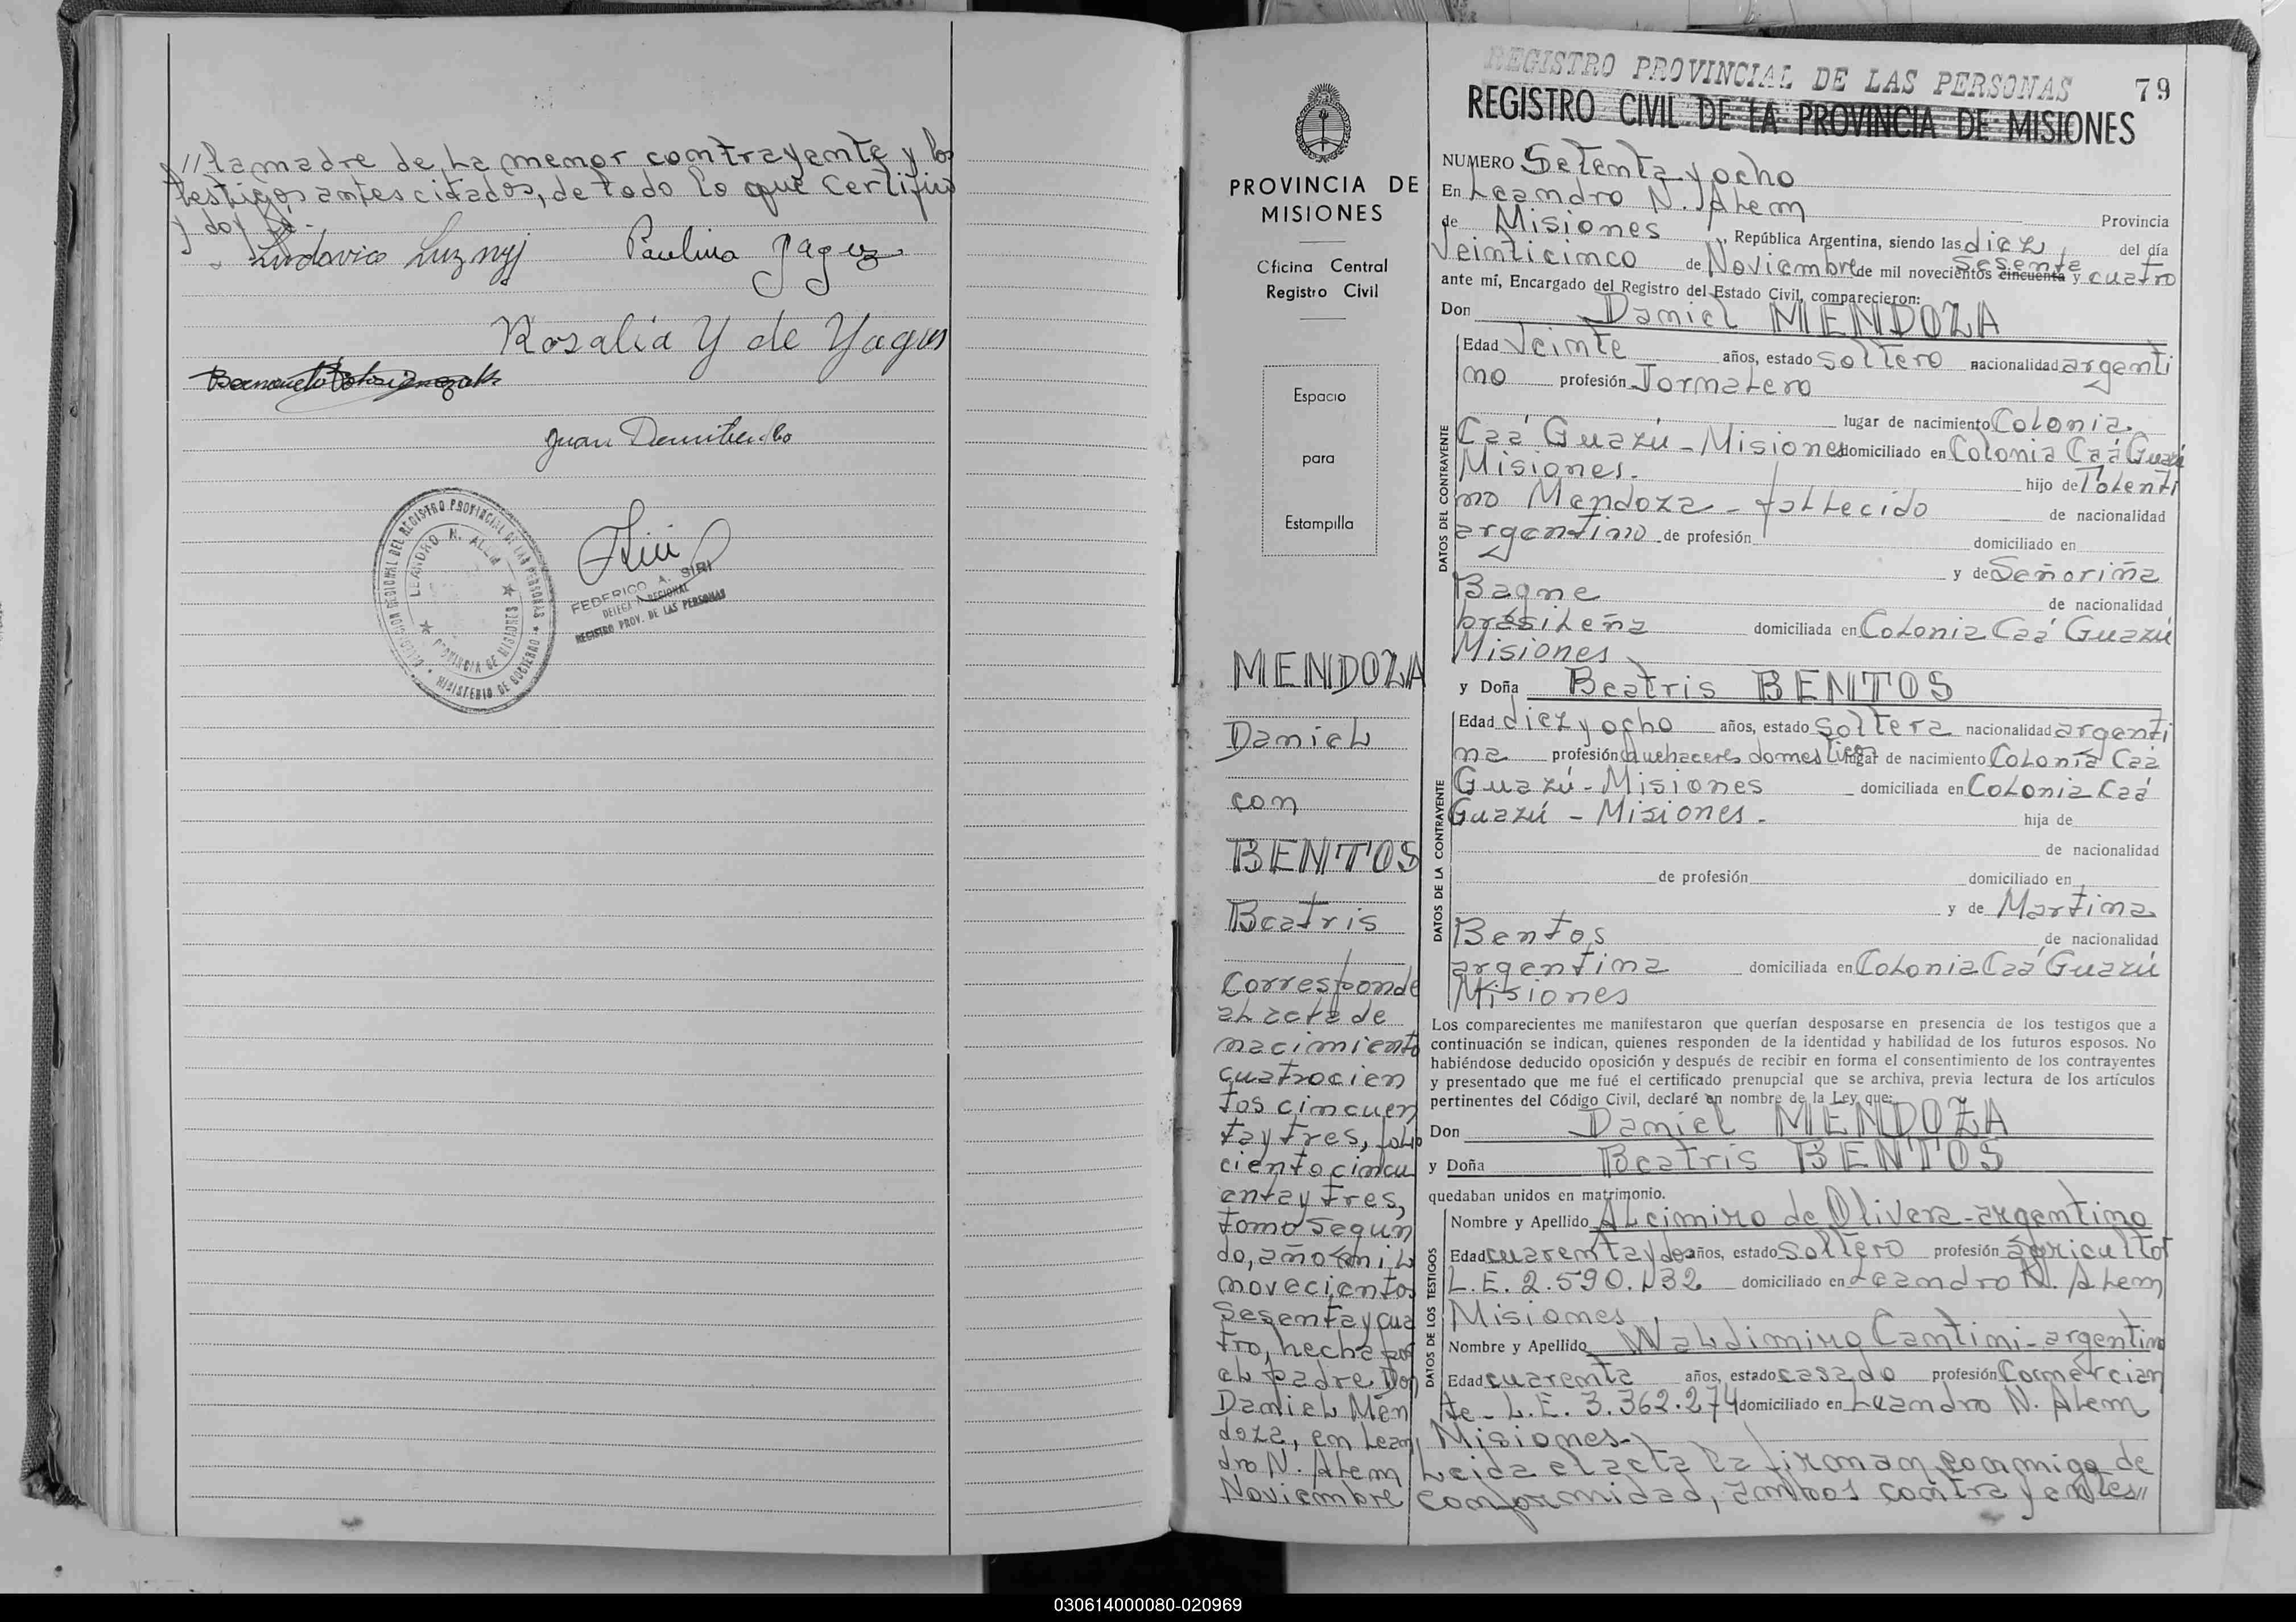 // la madre de la menor contrayente y los
testigos antes citados, de todo lo que Certifico
y doy fé.-
Ludovico Luznyj Paulina Jaguz
Rosalia Y de Yagus
Juan
DELEGACION REGIONAL DEL REGISTRO PROVINCIAL DE LAS PERSONAS
LEANDRO N. ALEM
PROVINCIA DE MISIONES
MINISTERIO DE GOBIERNO
FEDERICO A. SIRI
DELEGADO REGIONAL
REGISTRO PROV. DE LAS PERSONAS
PROVINCIA DE
MISIONES
Oficina Central
Registro Civil
Espacio
para
Estampilla
MENDOZA
Daniel
con
BENTOS
Beatris
Corresponde
al acta de
nacimiento
cuatrocien
tos cincuen
ta y tres, folio
ciento cincu
enta y tres,
tomo segun
do, año mil
novecientos
sesenta y cua
tro, hecha por
el padre Don
Daniel Men
doza, en Lean
dro N. Alem
Noviembre
REGISTRO PROVINCIAL DE LAS PERSONAS
79
REGISTRO CIVIL DE LA PROVINCIA DE MISIONES
NUMERO Setenta y ocho
En Leandro N. Alem
de Misiones Provincia
, República Argentina, siendo las diez del día
Veinticinco de Noviembre de mil novecientos cincuenta sesenta y cuatro
ante mí, Encargado del Registro del Estado Civil, comparecieron:
Don Daniel MENDOZA
DATOS DEL CONTRAYENTE
Edad Veinte años, estado soltero nacionalidad argenti
no profesión Jornalero
lugar de nacimiento Colonia
Caá Guazú - Misiones domiciliado en Colonia Caá Guazú
Misiones. hijo de Tolenti
no Mendoza - fallecido de nacionalidad
argentino de profesión domiciliado en
y de Señoriña
Bagne de nacionalidad
brasileña domiciliada en Colonia Caá Guazú
Misiones
y Doña Beatris BENTOS
DATOS DE LA CONTRAYENTE
Edad diez y ocho años, estado soltera nacionalidad argenti
na profesión quehaceres domesticos lugar de nacimiento Colonia Caá
Guazú - Misiones domiciliada en Colonia Caá
Guazú - Misiones. hija de
de nacionalidad
de profesión domiciliado en
y de Martina
Bentos de nacionalidad
argentina domiciliada en Colonia Caá Guazú
Misiones
Los comparecientes me manifestaron que querían desposarse en presencia de los testigos que a
continuación se indican, quienes responden de la identidad y habilidad de los futuros esposos. No
habiéndose deducido oposición y después de recibir en forma el consentimiento de los contrayentes
y presentado que me fué el certificado prenupcial que se archiva, previa lectura de los artículos
pertinentes del Código Civil, declaré en nombre de la Ley que:
Don Daniel MENDOZA
y Doña Beatris BENTOS
quedaban unidos en matrimonio.
DATOS DE LOS TESTIGOS
Nombre y Apellido Alcimiro de Olivera - argentino
Edad cuarenta y dos años, estado soltero profesión agricultor
L.E. 2.590.132 domiciliado en Leandro N. Alem
Misiones
Nombre y Apellido Waldimiro Cantini - argentino
Edad cuarenta años, estado casado profesión Comercian
te - L.E. 3.362.274 domiciliado en Leandro N. Alem
Misiones-
Leida el acta la firman conmigo de
conformidad, ambos contrayentes //
030614000080-020969